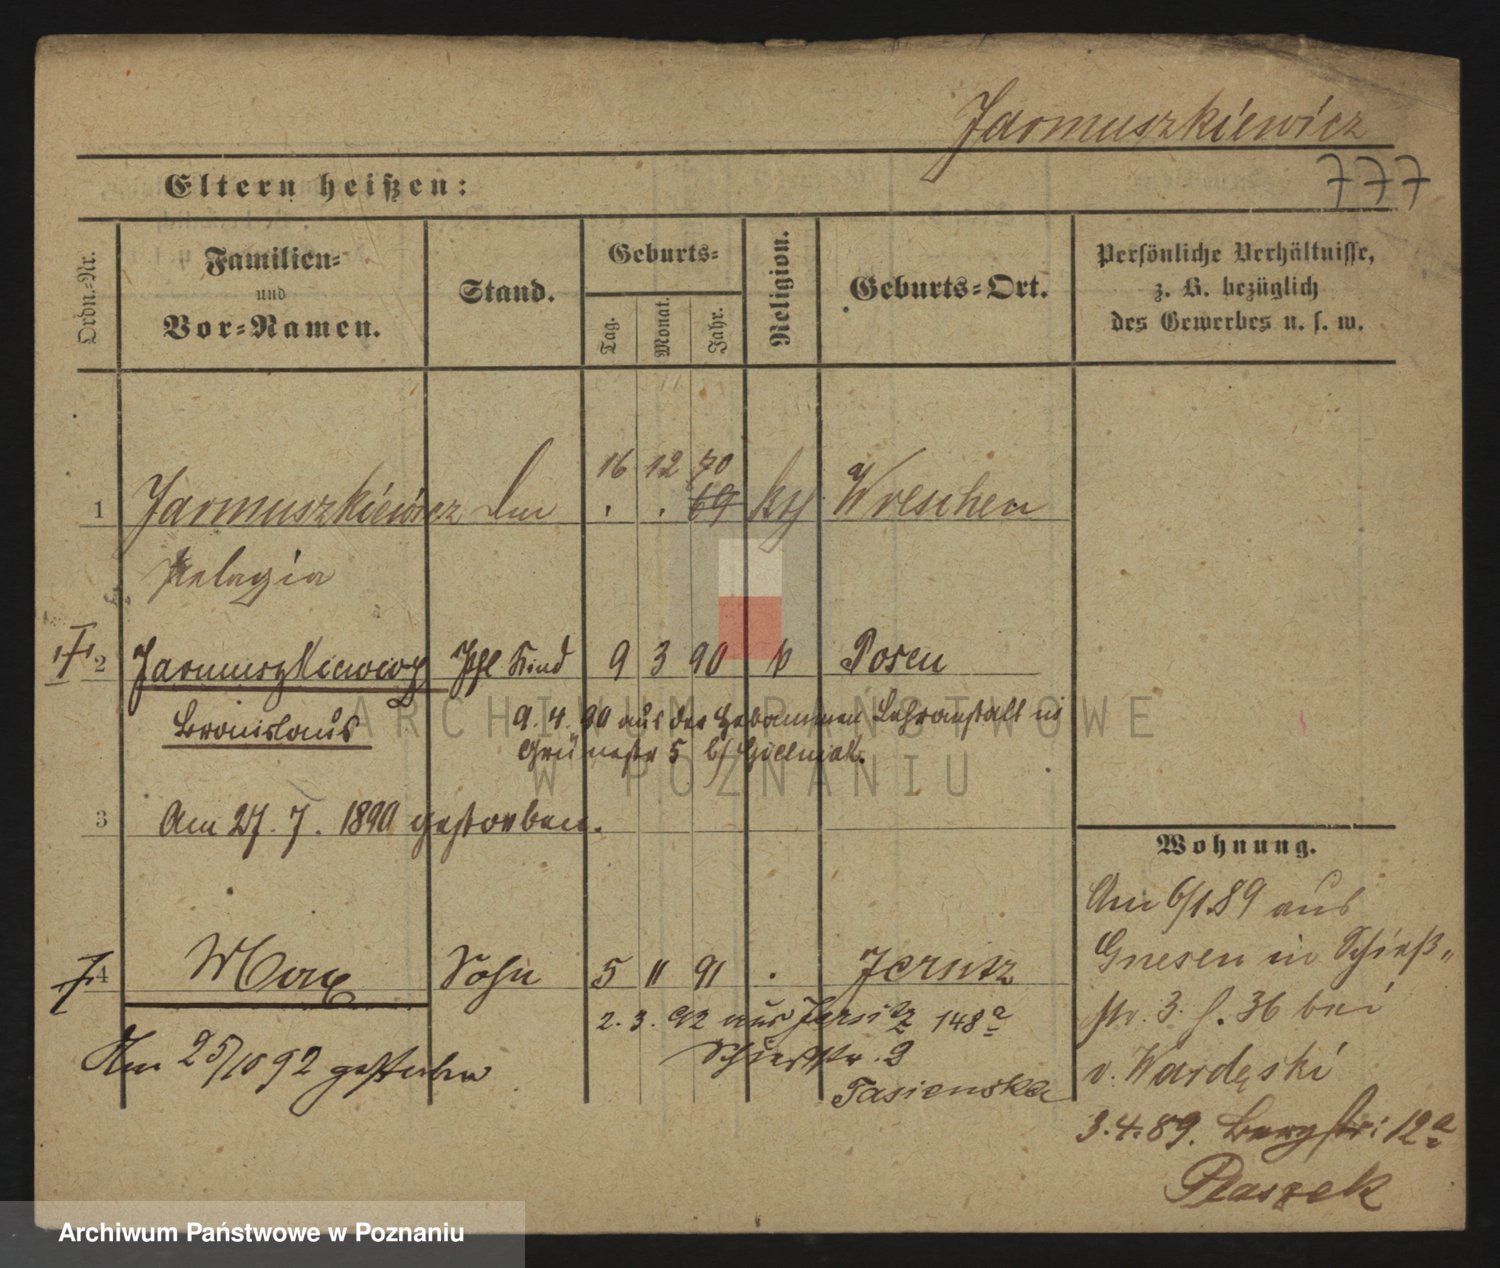 Jarmuszkiewicz
777
Eltern heißen:
Ordn.-Nr.
Familien-
und
Vor-Namen.
Stand.
Geburts-
Tag.
Monat.
Jahr.
Religion.
Geburts-Ort.
Persönliche Verhältnisse,
z. B. bezüglich
des Gewerbes u. s. w.
16 12 70
1 Jarmuszkiewicz . . 69 kth Wreschen
Pelagia
2 Jarmuszkiewicz Kind 9 3 90 k Posen
Bronislaus
9. 4. 90 aus der Hebammen Lehranstalt in
Grünestr 5 b/
3 Am 27. 7. 1890 gestorben.
4 Max Sohn 5 11 91 . Jersitz
2. 3. 92 aus Jersitz 148a
Schießstr. 3
Tasienska
Am 25/10 92 gestorben
Wohnung.
Am 6/1.89 aus
Gnesen in Schieß-
str. 3. f. 36 bei
v. Wardęski
3.4.89. Bergstr: 12a
Ptaszek
ARCHIWUM PAŃSTWOWE
W POZNANIU
Archiwum Państwowe w Poznaniu